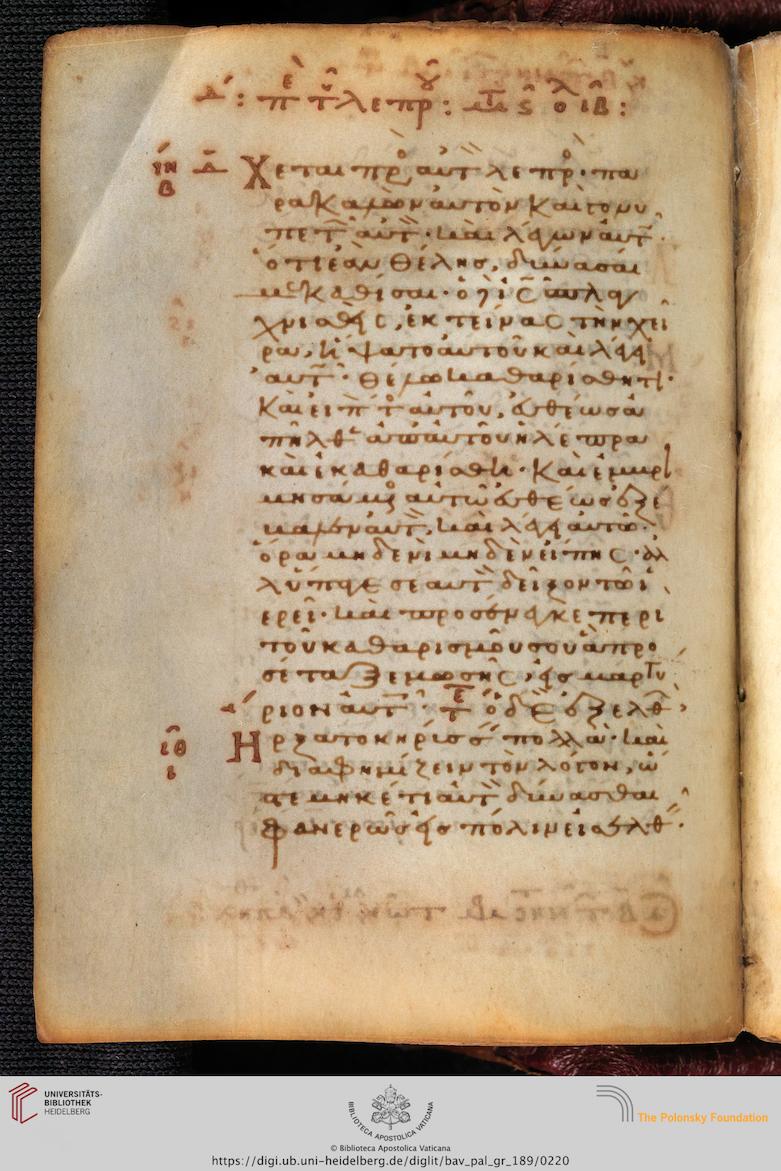 Δ: π τ λεπρ: ιβ:
ιη Χεται πρ αυτ λεπρ· πα
β
ρακαλῶν αὐτὸν καὶ γονυ
πετ αὐτ· καὶ λέγων αὐτ
ὅτι ἐὰν θέλης, δύνασαί
με καθαρίσαι· ὁ δὲ ις σπλαγ
χνισθεὶς, ἐκτείνας τὴν χεῖ
ρα, ἥψατο αὐτοῦ καὶ λέγει
αὐτ· θέλω καθαρίσθητι·
καὶ εἰπ τ αὐτοῦ, εὐθέως ἀ
πῆλθ ἀπ αὐτοῦ ἡ λέπρα
καὶ ἐκαθαρίσθη· καὶ ἐμβρι
μησάμ αὐτῶ εὐθέως ἐξέ
βαλεν αὐτ, καὶ λέγει αὐτῶ·
ὅρα μηδενὶ μηδὲν εἴπης· ἀλ
λ ὕπαγε σεαυτ δεῖξον τῶ ἱ
ερεῖ· καὶ προσένεγκε περὶ
τοῦ καθαρισμοῦ σου ἃ προ
σέταξε μωσῆς, εἰς μαρτύ
ριον αὐτ· ὁ δὲ ἐξελθ
ιθ Ἤρξατο κηρύσσ πολλὰ· καὶ
ι
διαφημίζειν τὸν λόγον, ὥ
στε μηκέτι αὐτ δύνασθαι
φανερῶς εἰς πόλιν εἰσελθ·
UNIVERSITÄTS-
BIBLIOTHEK
HEIDELBERG
BIBLIOTHECA APOSTOLICA VATICANA
The Polonsky Foundation
© Biblioteca Apostolica Vaticana
https://digi.ub.uni-heidelberg.de/diglit/bav_pal_gr_189/0220